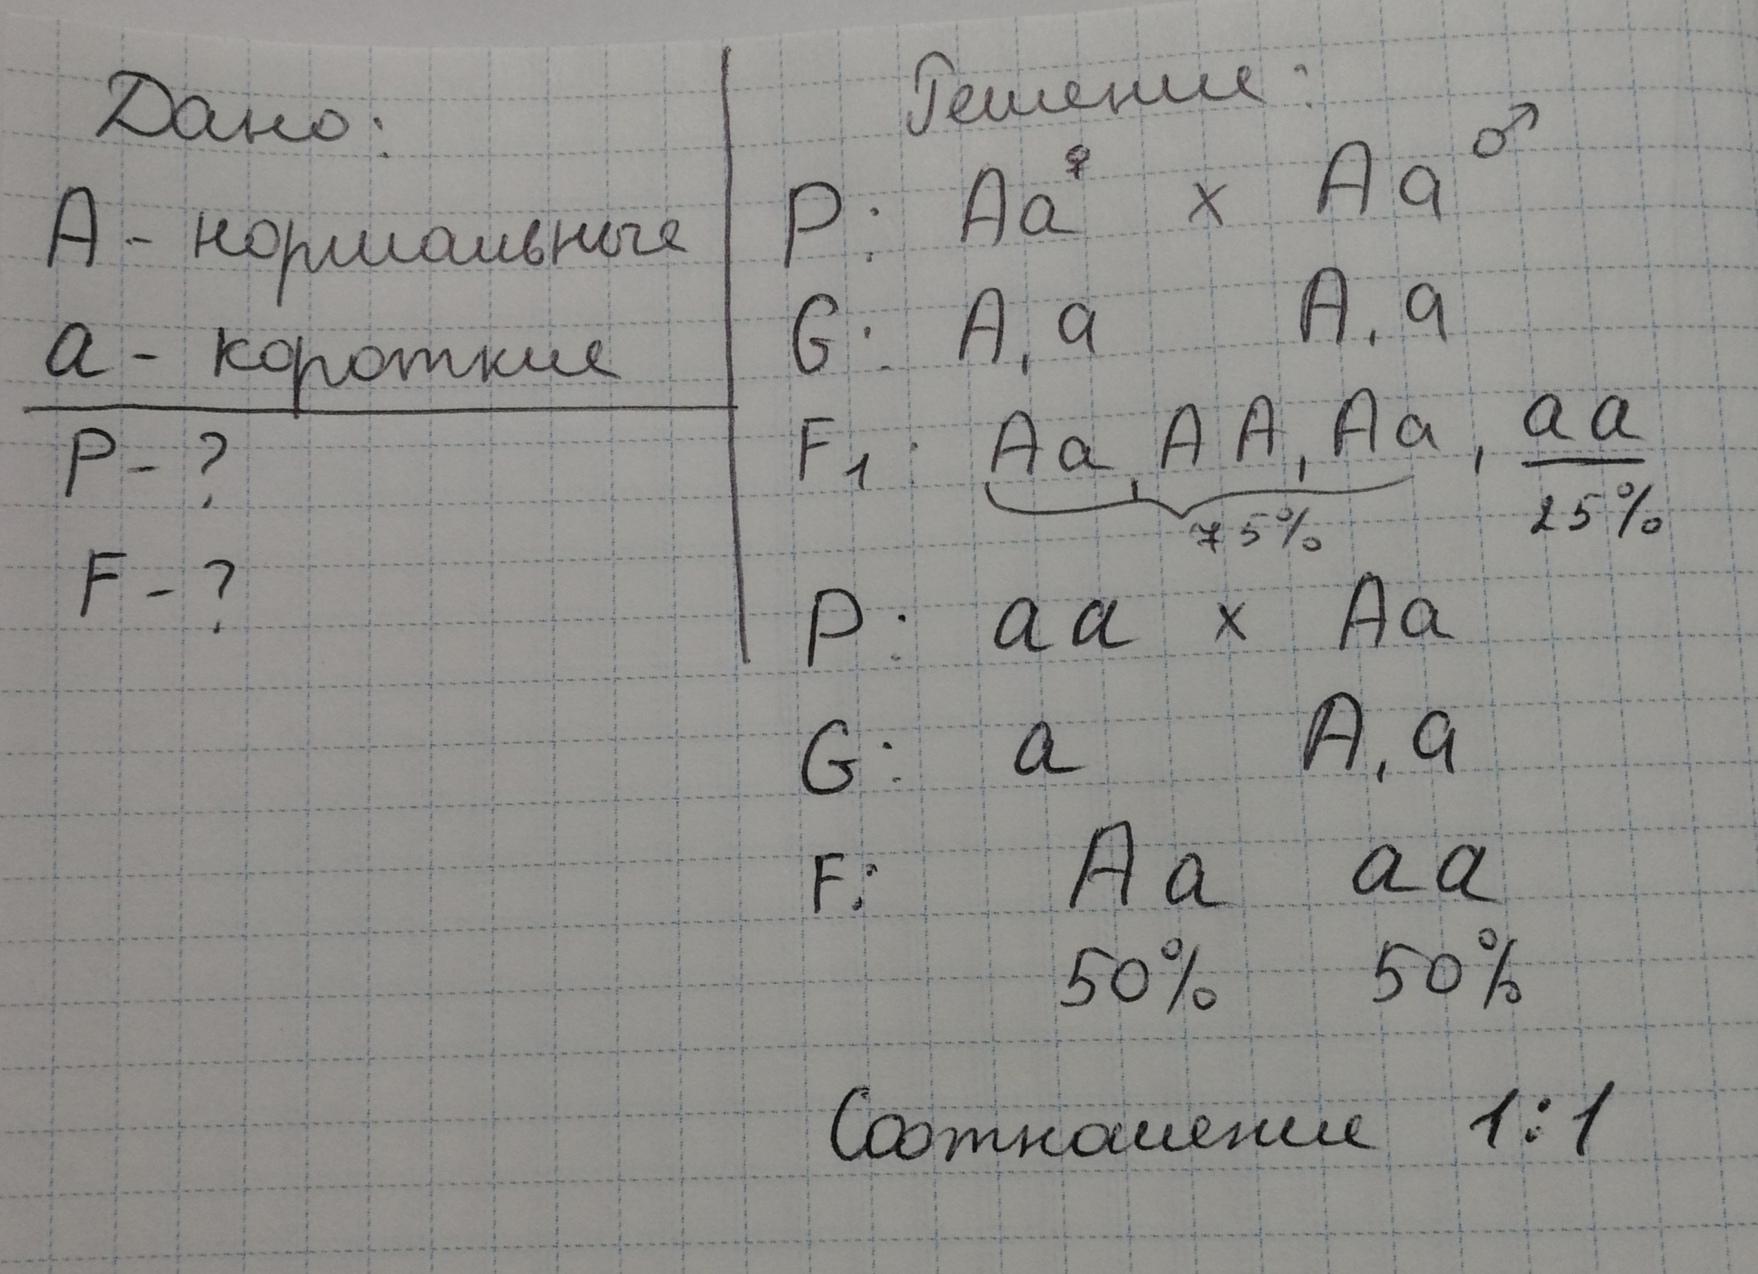 Дано:
А - нормальные
а - короткие
P - ?
F - ?
Решение:
P: Aa♀ x Aa♂
G: A, a A, a
F1: Aa, AA, Aa, aa
75% 25%
P: aa x Aa
G: a A, a
F: Aa aa
50% 50%
Соотношение 1:1